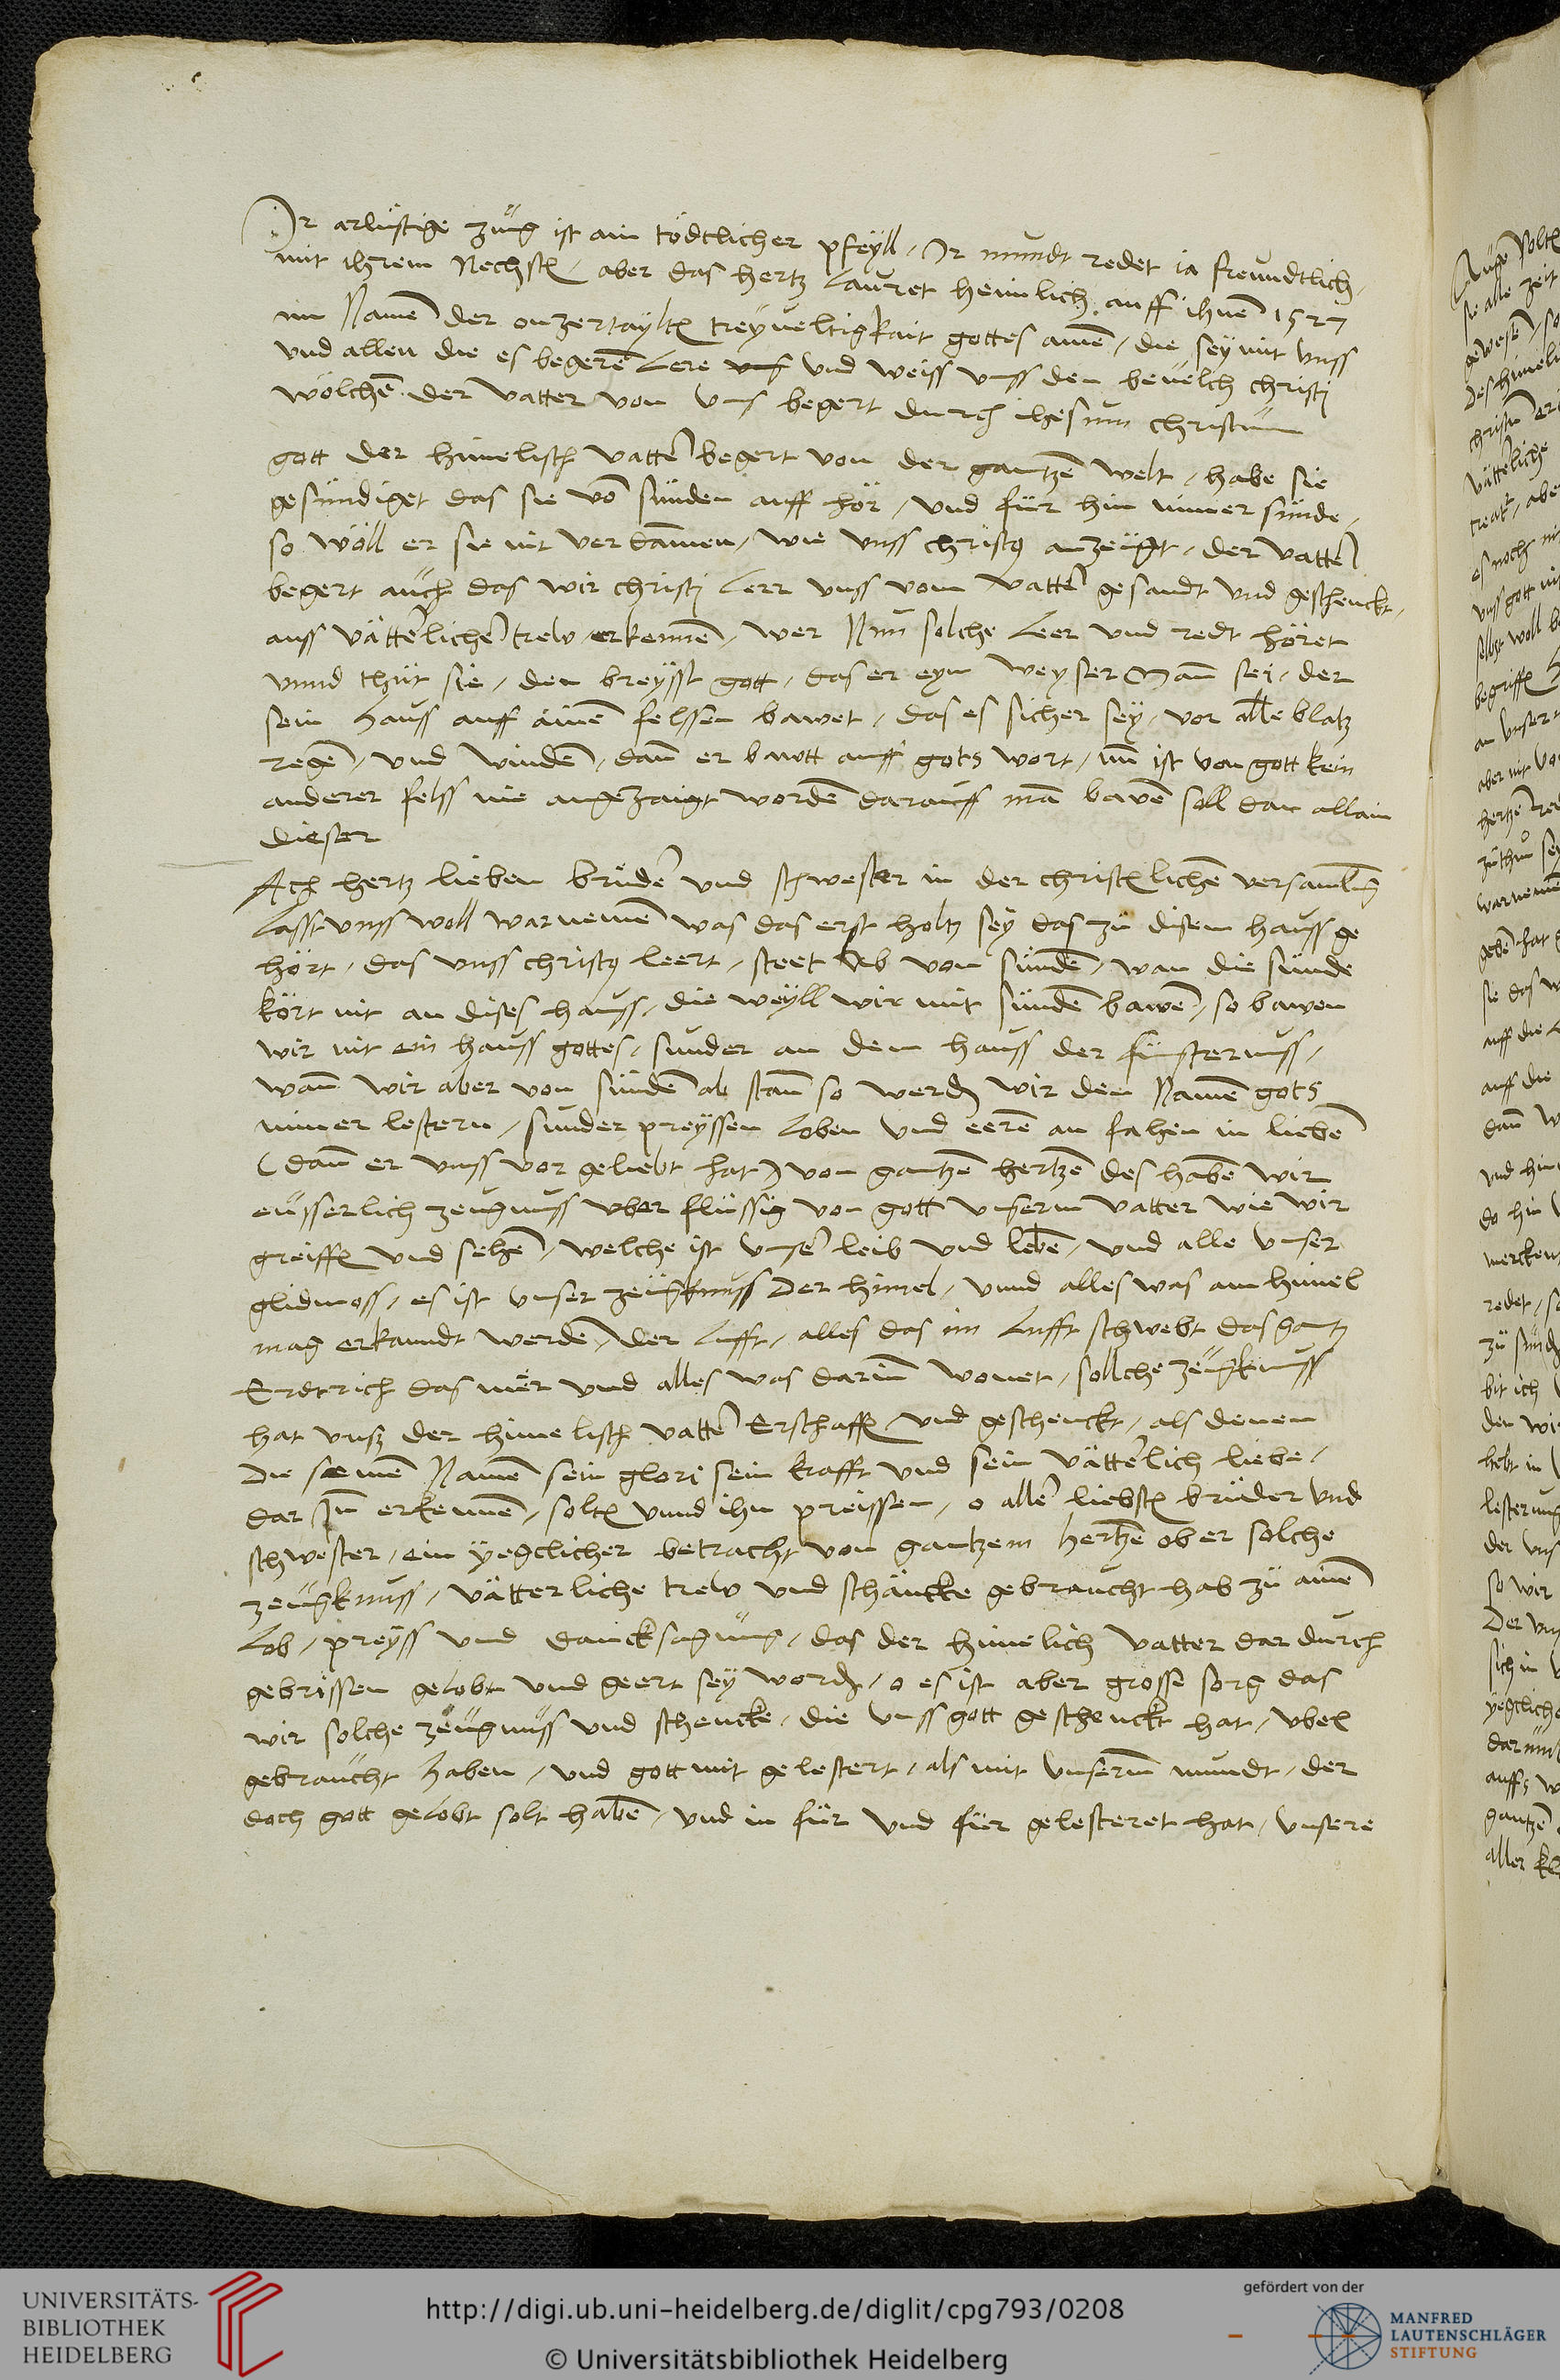 Ir arlüstige zung ist ain tödtlicher pfeyll / Ir mundt redet ia freundtlich /
mit ihrem Nechstē / aber das hertz lauret heimlich auff ihnē 1527
im Namē der onzertayltē treyueltigkait gottes amē / die sey mit vnss
vnd allen die es begerē Lere vns vnd weiss vnss den beuelch christi
wölchē der vatter von vns begert durch ihesum christum
gott der himelisch vatter begert von der gantzē welt / habe sie
gesündiget das sie vō sünden auff hör / vnd für hin nimer sünde /
so wöll er sie nit verdamen / wie vnss christus anzeugt / der vatter
begert auch das wir christi lerr vnss vom vatter gesandt vnd geschenckt /
auss vätterlicher trew erkennē / wer Nun solche leer vnd redt höret
vnnd thüt sie / den breysst gott / das er eyn weyser Man sei / der
sein hauss auff ainē felssen bawet / das es sicher sey / vor alle blatz
regē / vnd windē / dan er bawtt auff gots wort / nun ist von gott kein
anderer felss nie angezaigt wordē darauff mā bawē soll dan allain
dieser
Ach hertz lieben brüder vnd schwester in der christlichē versamlung
Lasst vnss woll warnemē was das erst holtz sey das zü disem hauss ge
hört / das vnss christus leert / steet ab von sündē / wan die sünde
hört nit an dises hauss / die weyll wir mit sündē bawē / so bawen
wir nit ein hauss gottes / sunder an dem hauss der finsternuss /
wan wir aber von sündē ab stan so werden wir den Namē gots
nimer lestern / sunder preyssen loben vnd eerē an fahen in liebē
( dan er vnss vor geliebt hat ) von gantzē hertzē des habē wir
eüsserlich zeugnuss vber flüssig von gott vnserm vatter wie wir
greiffen vnd sehē / welche ist vnser leib vnd lebē / vnd alle vnser
glidmoss / es ist vnser zeugknuss der himel / vnnd alles was am himel
mag erkanndt werdē / der lufft / alles das im lufft schwebt das gantz
Erdtrich das mër vnd alles was darin wonet / sollche zeugknuss
hat vnss der himelisch vatter Erschaffen vnd geschenckt / als denen
die seinē Namē sein glori sein krafft vnd sein vätterlich liebe /
dar In erkennē / soltē vnnd ihn preissen / o aller liebstē brüder vnd
schwester / ein yegclicher betracht von gantzem hertzē ob er solche
zeugknuss / vätterliche trew vnd schäncke gebraucht hab zü ainē
Lob / preyss vnd dancksagung / das der himelich vatter dar durch
gebrissen gelobt vnd geert sey worden / o es ist aber grosse sorg das
wir solche zeugnuss vnd schencke / die vnss gott geschenckt hat / vbel
gebraucht haben / vnd gott mit gelestert / als mit vnserm mundt / der
doch gott gelobt solt habē / vnd in für vnd für gelesteret hat / vnsere
UNIVERSITÄTS-
BIBLIOTHEK
HEIDELBERG
http://digi.ub.uni-heidelberg.de/diglit/cpg793/0208
© Universitätsbibliothek Heidelberg
gefördert von der
MANFRED
LAUTENSCHLÄGER
STIFTUNG